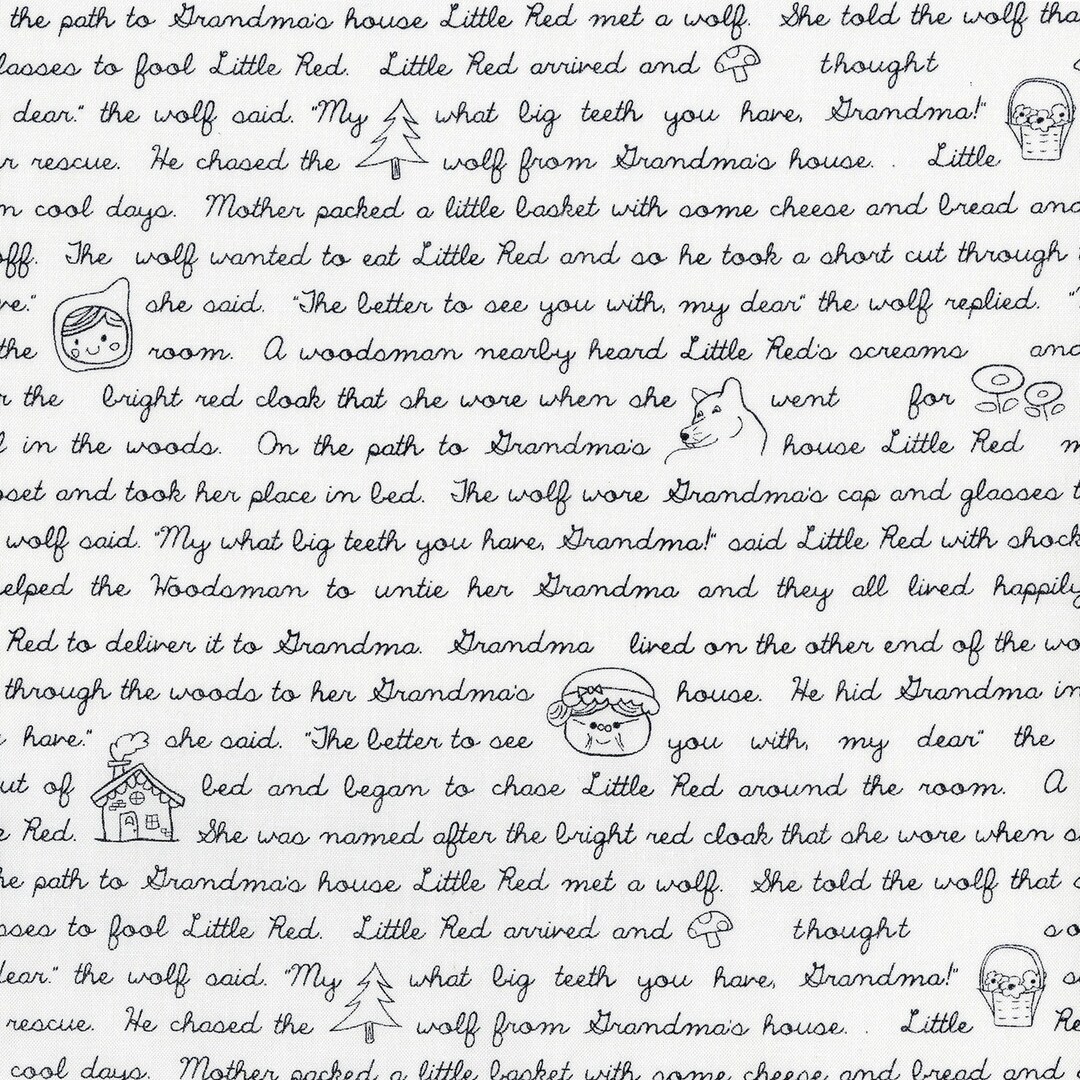 the path to Grandma's house Little Red met a wolf. She told the wolf tha
lasses to fool Little Red. Little Red arrived and thought s
dear." the wolf said. "My what big teeth you have, Grandma!"
r rescue. He chased the wolf from Grandma's house. . Little
n cool days. Mother packed a little basket with some cheese and bread and
off. The wolf wanted to eat Little Red and so he took a short cut through
ve." she said. "The better to see you with, my dear" the wolf replied. "
the room. A woodsman nearby heard Little Red's screams and
r the bright red cloak that she wore when she went for
l in the woods. On the path to Grandma's house Little Red m
oset and took her place in bed. The wolf wore Grandma's cap and glasses t
wolf said. "My what big teeth you have, Grandma!" said Little Red with shock
elped the Woodsman to untie her Grandma and they all lived happily
Red to deliver it to Grandma. Grandma lived on the other end of the wo
through the woods to her Grandma's house. He hid Grandma in
have." she said. "The better to see you with, my dear" the
ut of bed and began to chase Little Red around the room. A
e Red. She was named after the bright red cloak that she wore when s
he path to Grandma's house Little Red met a wolf. She told the wolf that s
sses to fool Little Red. Little Red arrived and thought so
dear." the wolf said. "My what big teeth you have, Grandma!" s
rescue. He chased the wolf from Grandma's house. . Little Re
cool days. Mother packed a little basket with some cheese and bread and